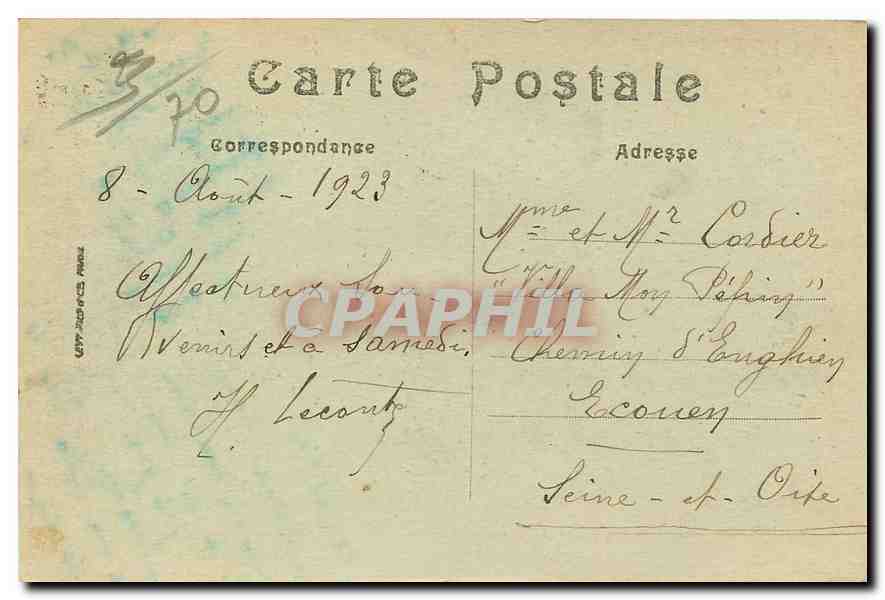 Carte Postale
5/70
Correspondance
Adresse
8 - Août - 1923
Affectueux Sou-
venirs et à Samedi.
H. Leconte
Mme et Mr Cordier
"Villa Mon Pépin"
Chemin d'Enghien
Ecouen
Seine-et-Oise
CPAPHIL